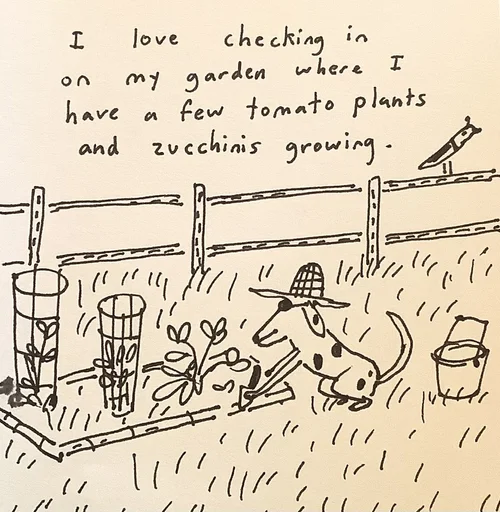 I love checking in
on my garden where I
have a few tomato plants
and zucchinis growing.